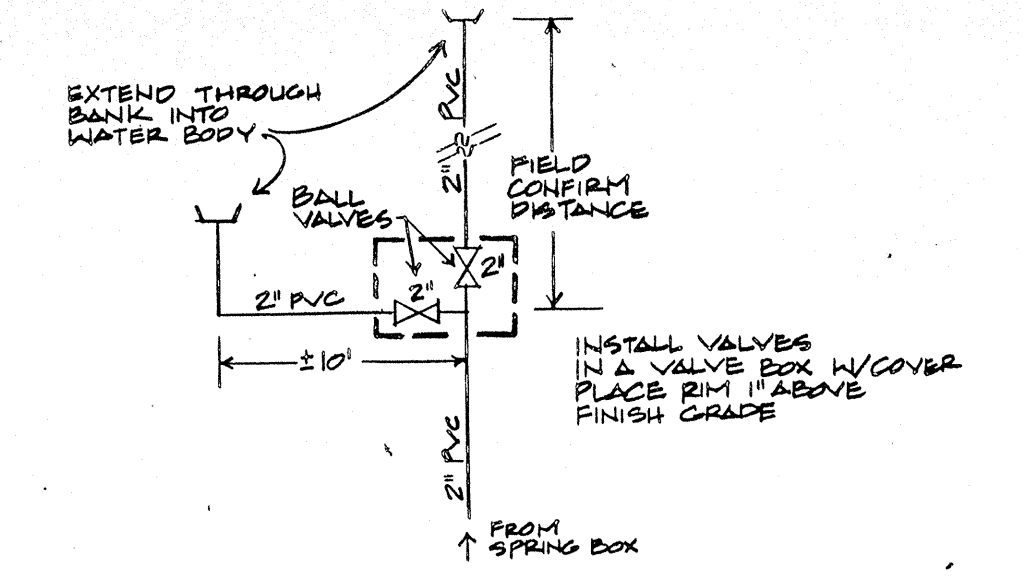 EXTEND THROUGH
BANK INTO
WATER BODY
PVC
2"
FIELD
CONFIRM
DISTANCE
BALL
VALVES
2"
2"
2" PVC
±10'
INSTALL VALVES
IN A VALVE BOX W/COVER
PLACE RIM 1" ABOVE
FINISH GRADE
2" PVC
FROM
SPRING BOX